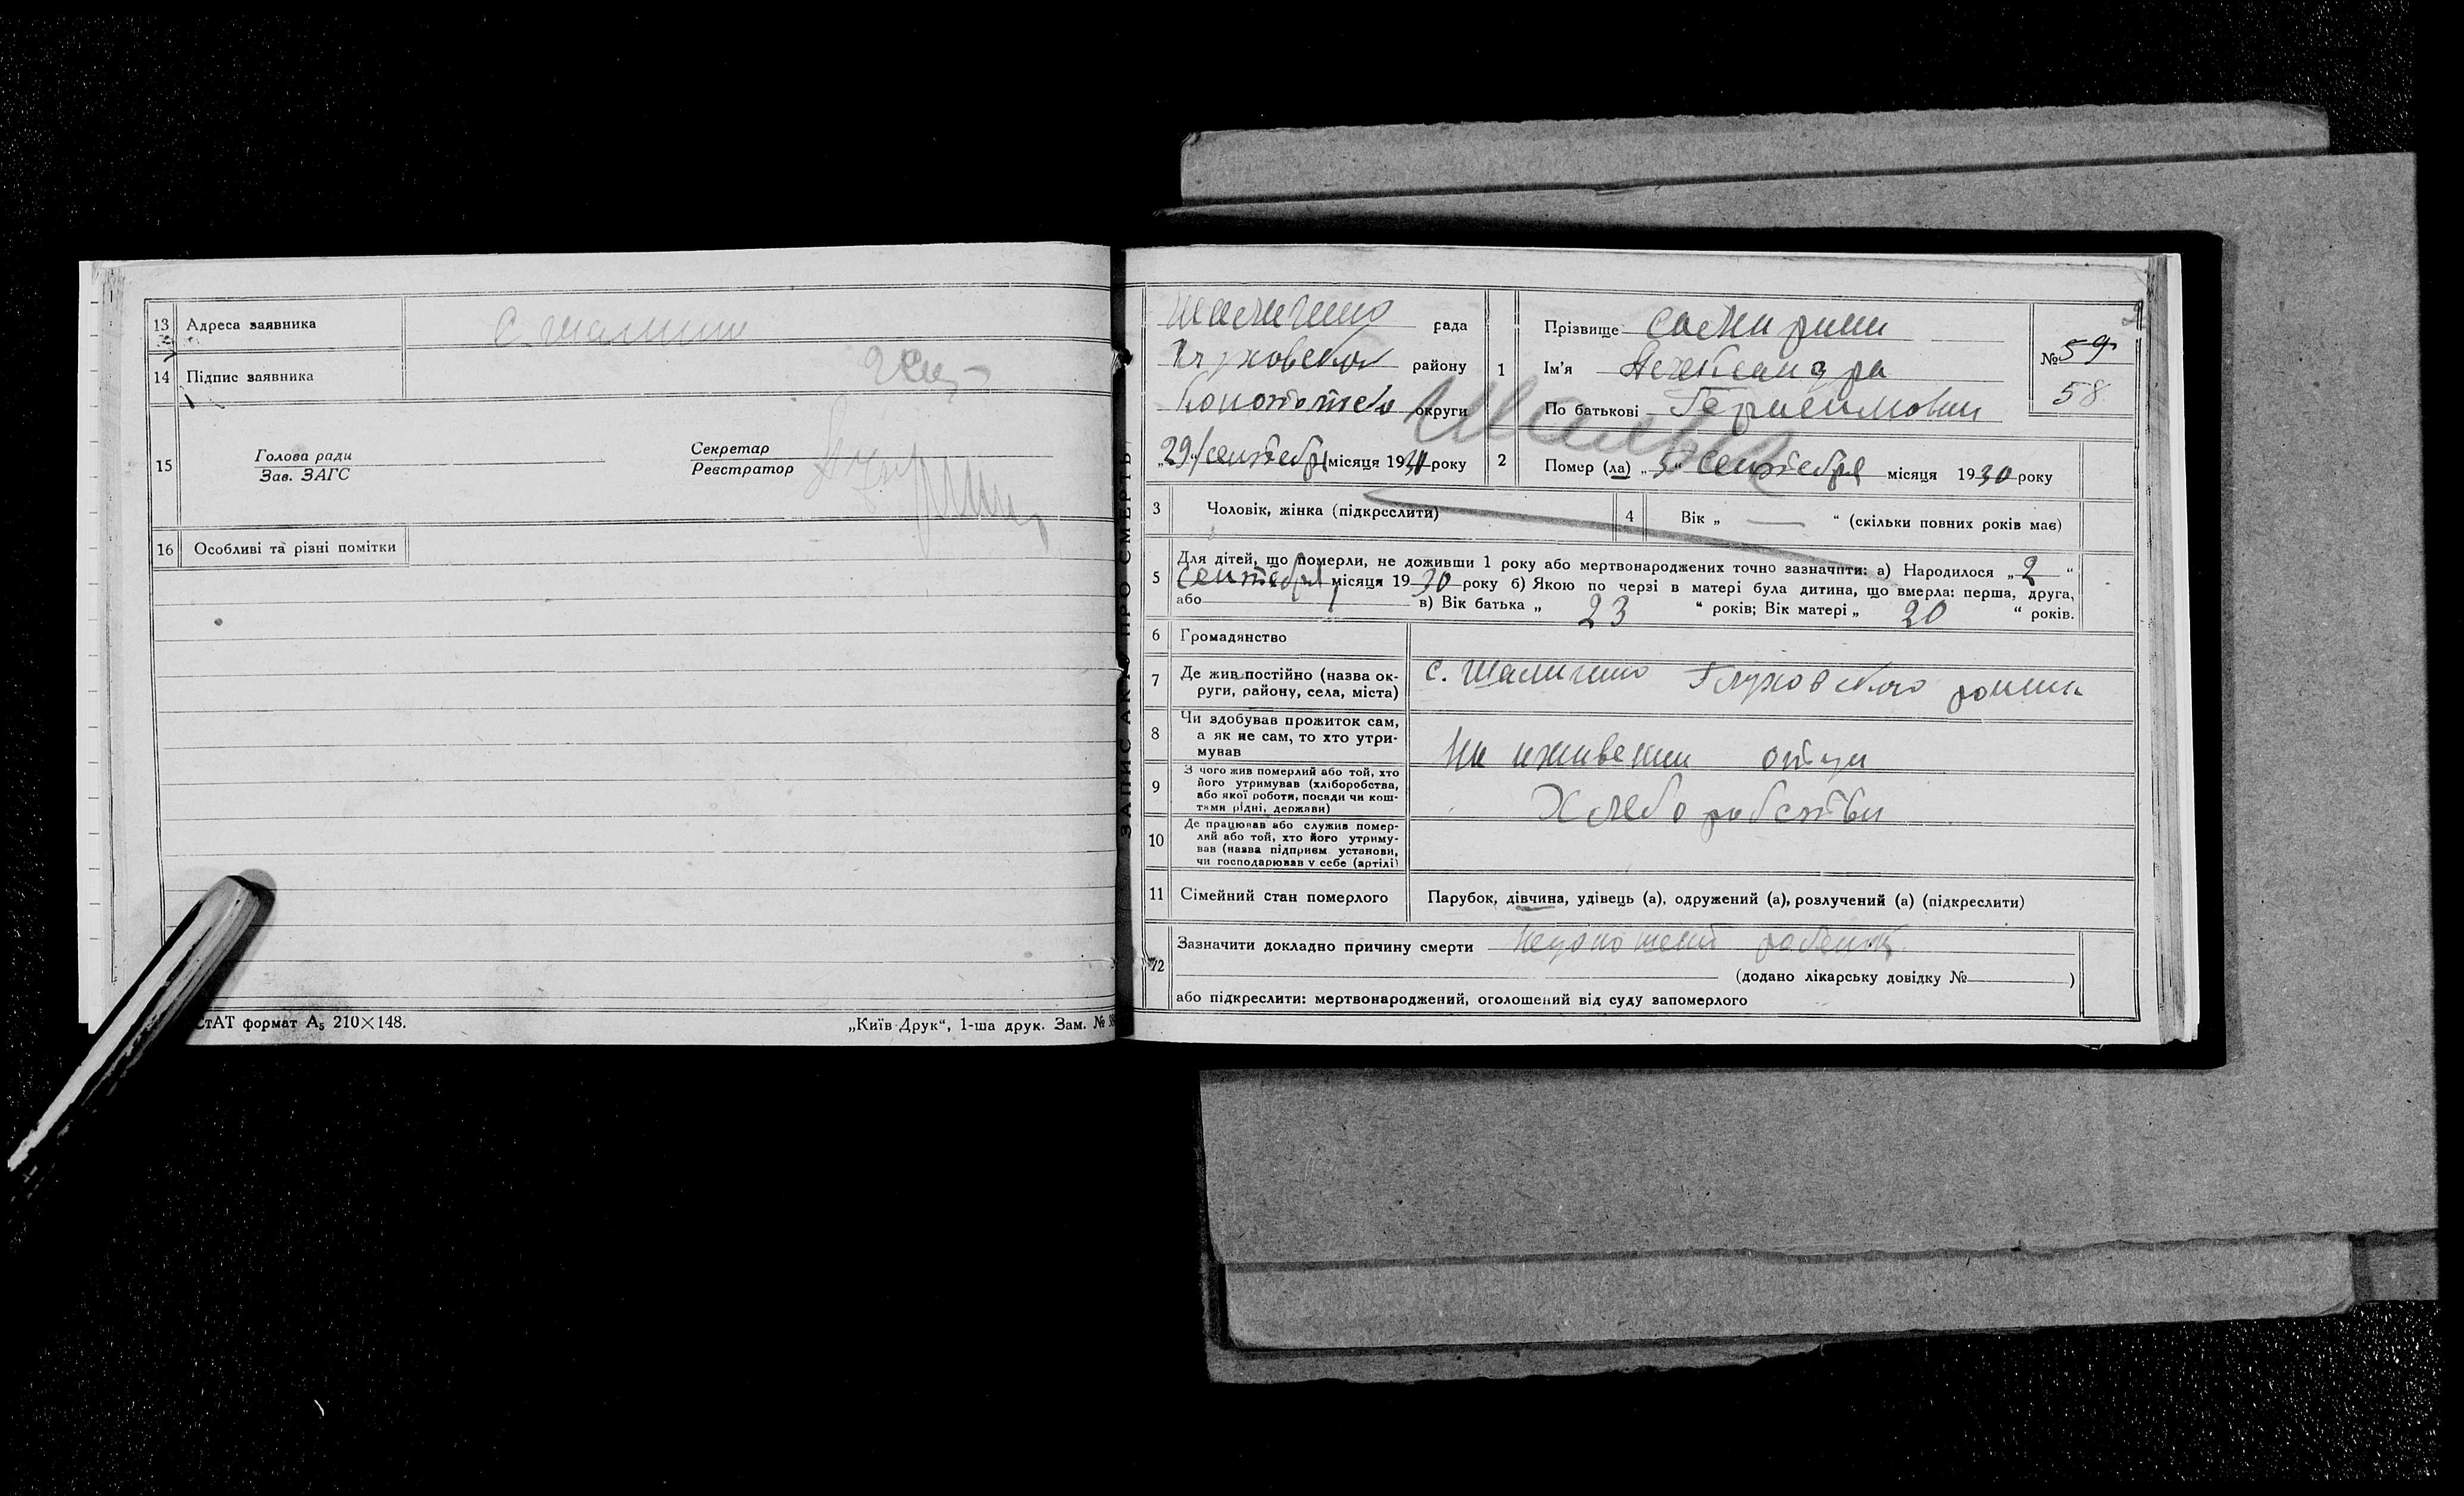 13 Адреса заявника
14 Підпис заявника
15 Голова ради
Зав. ЗАГС
Секретар
Реєстратор
16 Особливі та різні помітки
формат А5 210×148.
„Київ-Друк“, 1-ша друк. Зам. №
ЗАПИС АКТУ ПРО СМЕРТЬ
Шаличино рада
району
округи
„29“ сентебря місяця 1930 року
1 Прізвище
Ім'я Александра
По батькові Герасимовна
№ 59
58
2 Помер (ла) „5“ Сентебря місяця 1930 року
3 Чоловік, жінка (підкреслити)
4 Вік „ — “ (скільки повних років має)
5 Для дітей, що померли, не доживши 1 року або мертвонароджених точно зазначити: а) Народилося „2“
Сентебря місяця 1930 року б) Якою по черзі в матері була дитина, що вмерла: перша, друга,
або в) Вік батька „ 23 “ років; Вік матері „ 20 “ років.
6 Громадянство
7 Де жив постійно (назва ок-
руги, району, села, міста)
с. Шаличино Глуховского
8 Чи здобував прожиток сам,
а як не сам, то хто утри-
мував
На иживении отца
9 З чого жив померлий або той, хто
його утримував (хліборобства,
або якої роботи, посади чи кош-
тами рідні, держави)
Хлеборобства
10 Де працював або служив помер-
лий або той, хто його утриму-
вав (назва підприєм. установи,
чи господарював у себе (артілі)
11 Сімейний стан померлого
Парубок, дівчина, удівець (а), одружений (а), розлучений (а) (підкреслити)
12 Зазначити докладно причину смерти
(додано лікарську довідку № )
або підкреслити: мертвонароджений, оголошений від суду запомерлого